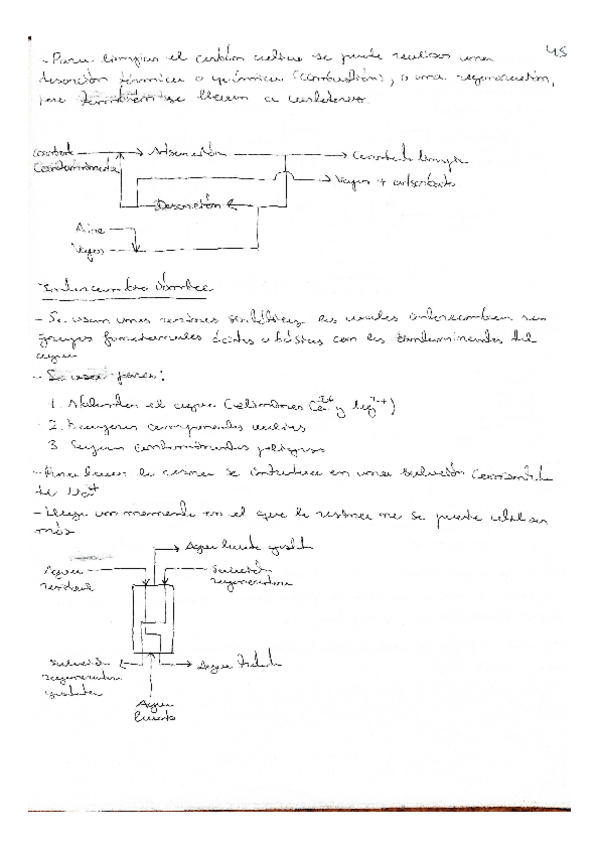 45
- Para limpiar el carbón activo se puede realizar una
desorción térmica o química (combustión), o una regeneración,
pero también se llevan a vertederos.
Adsorción → Corriente limpia
Contaminada
Vapor + adsorbato
Desorción
Aire
Vapor
Intercambio iónico
- Se usan unas resinas sintéticas, las cuales intercambian sus
grupos funcionales ácidos o básicos con los contaminantes del
agua
- Se usa para:
1. Ablandar el agua (eliminar Ca²⁺ y Mg²⁺)
2. Recuperar componentes valiosos
3. Separar contaminantes peligrosos
- Para lavar la resina se introduce en una solución concentrada
de Na⁺
- Llega un momento en el que la resina no se puede utilizar
más
Agua lavado gastada
Agua
residual
Solución
regeneradora
Solución
regeneradora
gastada
Agua tratada
Agua
lavado